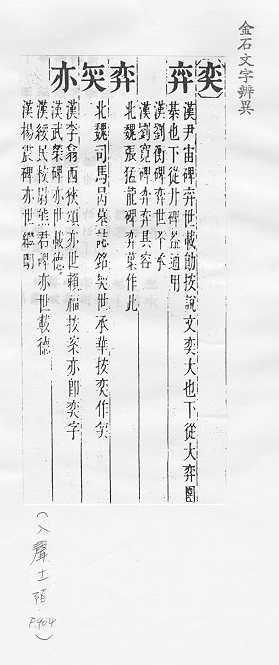 金石文字辨異
奕
弈
漢尹宙碑弈世載勛按說文奕大也下從大弈圍
棊也下從廾碑葢通用
漢劉衡碑弈世不永
漢劉寬碑弈弈其容
弈
北魏張猛龍碑弈葉作此
㚑
北魏司馬昺墓誌銘 世承華按奕作
亦
漢李翕西狹頌亦世賴福按案亦即奕字
漢武榮碑亦世載德
漢綏民校尉熊君碑亦世載德
漢楊震碑亦世繼明
(入 土碩 P.904)